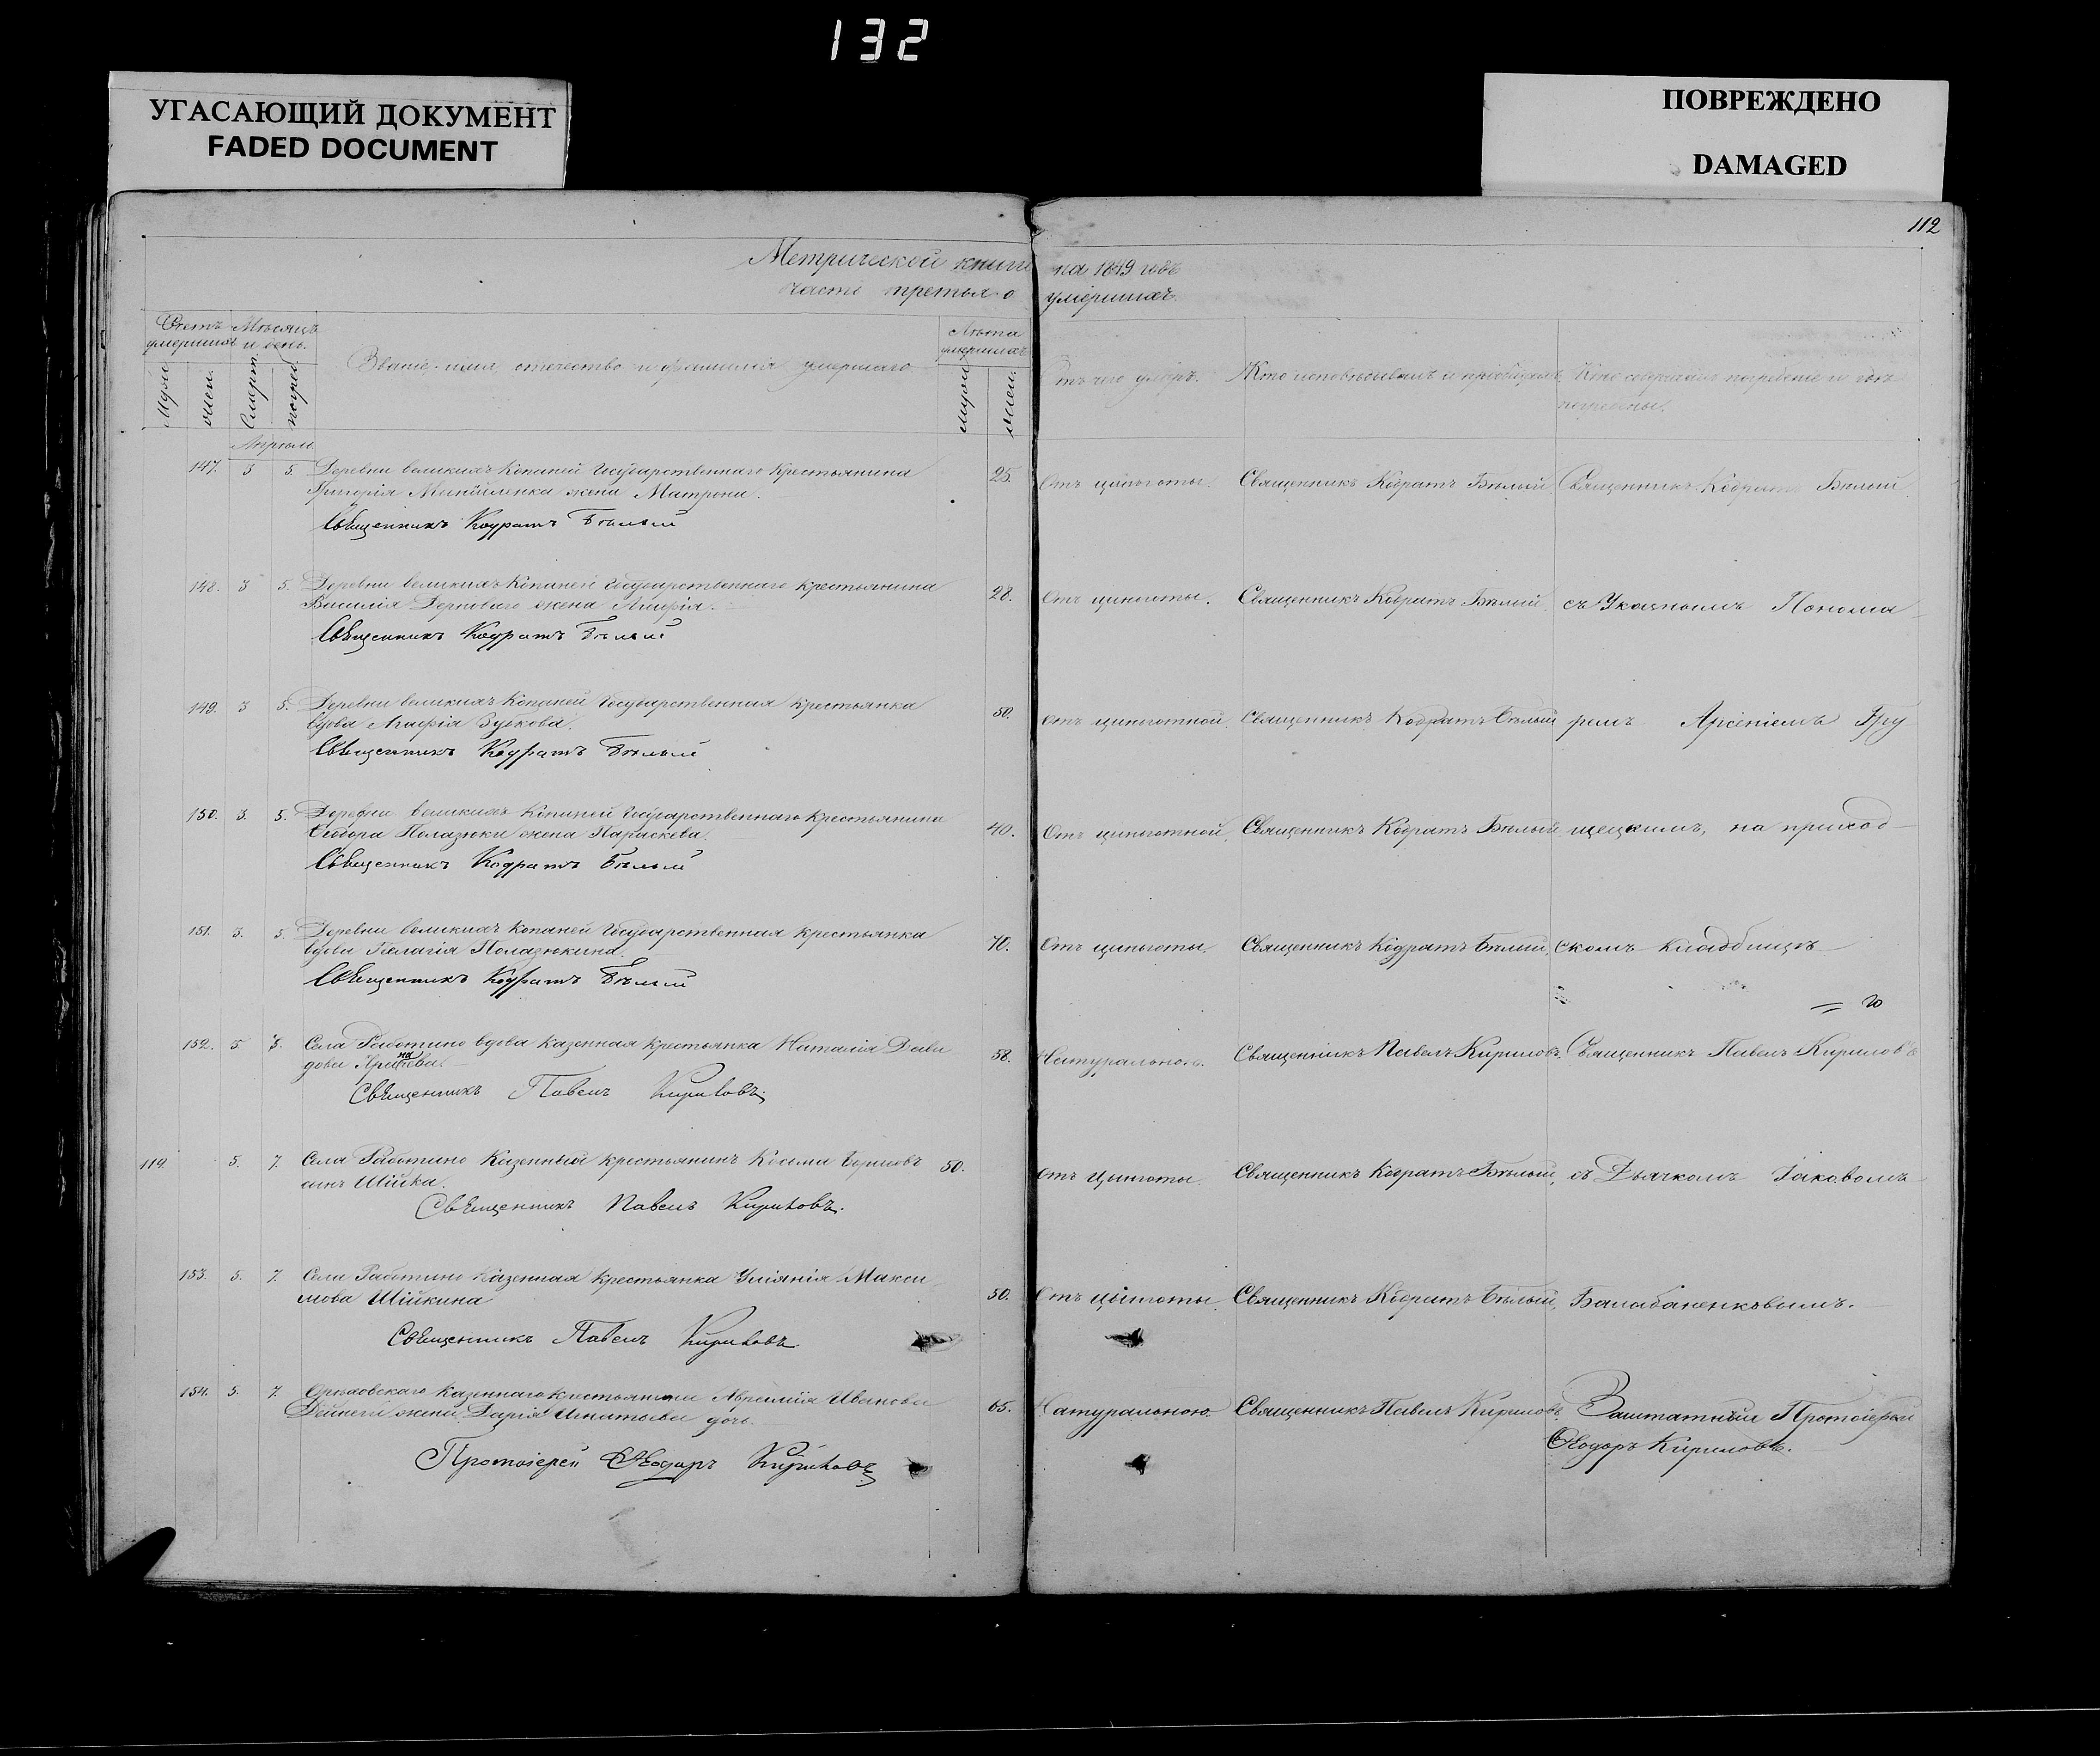 132
УГАСАЮЩИЙ ДОКУМЕНТ
FADED DOCUMENT
ПОВРЕЖДЕНО
DAMAGED
112
Метрической книги на 1849 годъ
часть третья о умершихъ.
Счетъ умершихъ
Мѣсяцъ и день.
Званіе, имя, отчество и фамилія умершаго.
Лѣта умершихъ
Отъ чего умеръ.
Кто исповѣдывалъ и пріобщалъ
Кто совершалъ погребеніе и гдѣ
погребены.
Апрѣль
147. 3 5. Деревни великихъ Копаней Государственнаго Крестьянина 25. Отъ цынготы. Священникъ Кодратъ Бѣлый Священникъ Кодратъ Бѣлый
Григорія жена Матрона.
Священникъ Кодратъ Бѣлый
148. 3 5. Деревни великихъ Копаней Государственнаго крестьянина 28. Отъ цынготы. Священникъ Кодратъ Бѣлый съ Указнымъ Понома-
Василія жена Агафія.
Священникъ Кодратъ Бѣлый
149. 3 5. Деревни великихъ Копаней Государственная крестьянка 50. Отъ цынготной Священникъ Кодратъ Бѣлый ремъ Арсеніемъ Гру
вдова Агафія Зубкова.
Священникъ Кодратъ Бѣлый
150. 3. 5. Деревни великихъ Копаней Государственнаго крестьянина 40. Отъ цынготной Священникъ Кодратъ Бѣлый щецкимъ, на приход-
Ѳеодора Полазюки жена Параскева.
Священникъ Кодратъ Бѣлый
151. 3. 5. Деревни великихъ Копаней Государственная крестьянка 70. Отъ цынготы. Священникъ Кодратъ Бѣлый, скомъ кладбищѣ
вдова Пелагія Полазюкина.
Священникъ Кодратъ Бѣлый
152. 5 8. Села Работино вдова казенная крестьянка Наталія Дави 58. Натуральною. Священникъ Павелъ Кириловъ. Священникъ Павелъ Кириловъ
дова
Священникъ Павелъ Кириловъ
112. 5. 7. Села Работино Казенный крестьянинъ Косма 50. Отъ Цынготы. Священникъ Кодратъ Бѣлый, съ Дьячкомъ Іаковомъ
сынъ Шійка.
Священникъ Павелъ Кириловъ.
153. 5. 7. Села Работино Казенная крестьянка Уліянія Макси 50. Отъ цынготы. Священникъ Кодратъ Бѣлый, Балабаненковымъ.
мова Шійкина
Священникъ Павелъ Кириловъ
154. 5. 7. Орѣховскаго Казеннаго крестьянина Аврамія Иванова 65. Натуральною. Священникъ Павелъ Кириловъ. Заштатный Протоіерей
Дейнеги жена Дарія Игнатьева дочь. Ѳеодоръ Кириловъ.
Протоіерей Ѳеодоръ Кириловъ